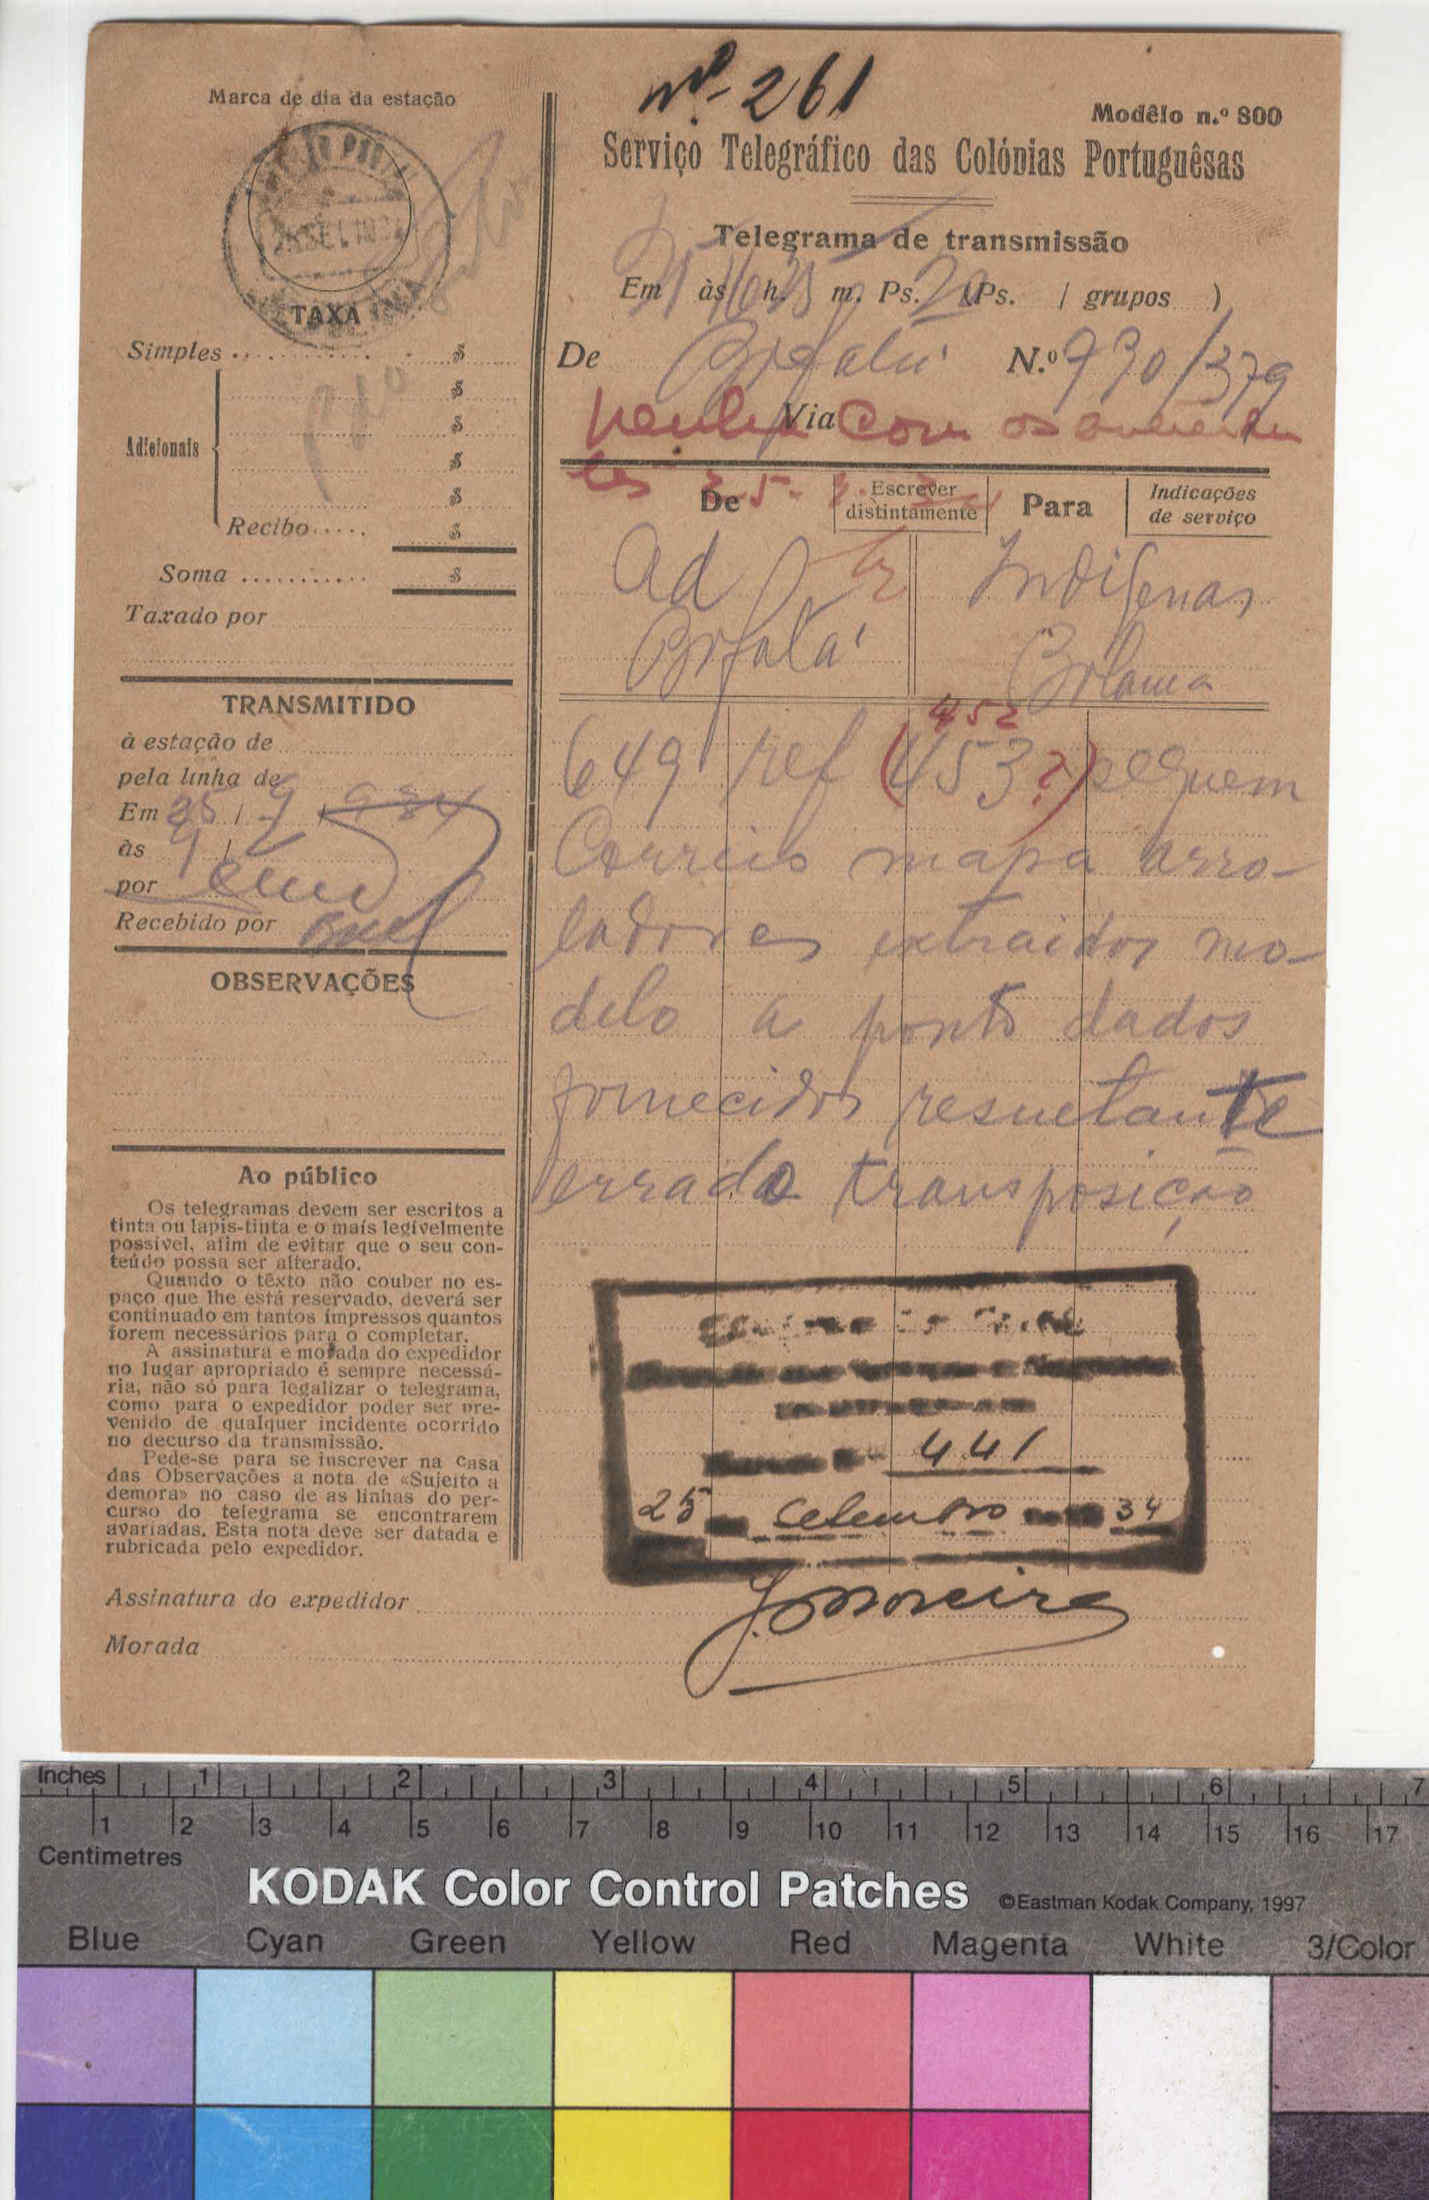 Nº 261
Marca de dia da estação
Modêlo n.º 800
Serviço Telegráfico das Colónias Portuguêsas
Telegrama de transmissão
Em às h. m. Ps. 20 (Ps. / grupos )
De Bafatá N.º 930/379
Via
Venha com os anteceden
tes
De
Escrever
distintamente
Para
Indicações
de serviço
Ad
Bafatá
Indigenas
Bolama
452
649 ref (453?) seguem
Correio mapa arro-
ladores extraidos mo-
delo a ponto dados
fornecidos resultante
errada transposição
441
25 Setembro 34
J. Moreira
TAXA
Simples $
$
$
Adicionais
$
$
Recibo $
Soma $
Taxado por
TRANSMITIDO
à estação de
pela linha de
Em 25 / 9 / 934
às 9 /
por
Recebido por
OBSERVAÇÕES
Ao público
Os telegramas devem ser escritos a
tinta ou lapis-tinta e o mais legívelmente
possível, afim de evitar que o seu con-
teúdo possa ser alterado.
Quando o têxto não couber no es-
paço que lhe está reservado, deverá ser
continuado em tantos impressos quantos
forem necessários para o completar.
A assinatura e morada do expedidor
no lugar apropriado é sempre necessá-
ria, não só para legalizar o telegrama,
como para o expedidor poder ser pre-
venido de qualquer incidente ocorrido
no decurso da transmissão.
Pede-se para se inscrever na casa
das Observações a nota de «Sujeito a
demora» no caso de as linhas do per-
curso do telegrama se encontrarem
avariadas. Esta nota deve ser datada e
rubricada pelo expedidor.
Assinatura do expedidor
Morada
Inches 1 2 3 4 5 6 7
1 2 3 4 5 6 7 8 9 10 11 12 13 14 15 16 17
Centimetres
KODAK Color Control Patches ©Eastman Kodak Company, 1997
Blue Cyan Green Yellow Red Magenta White 3/Color